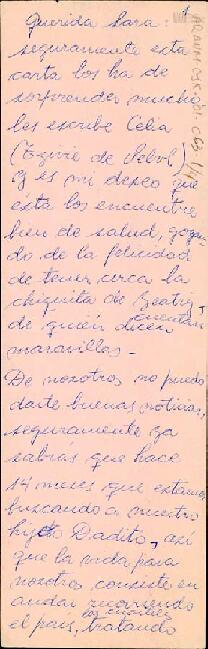 1
Querida Sara:
seguramente esta
carta los ha de
sorprender mucho
les escribe Celia
y es mi deseo que
ésta los encuentre
bien de salud, gozan
do de la felicidad
de tener cerca la
chiquita de Beatriz
de quién cuentan
dicen
maravillas -
De nosotros no puedo
darte buenas noticias,
seguramente ya
sabrás que hace
14 meses que estamos
buscando a nuestro
hijito Dadito, así
que la vida para
nosotros consiste en
andar recorriendo
el país, tratando